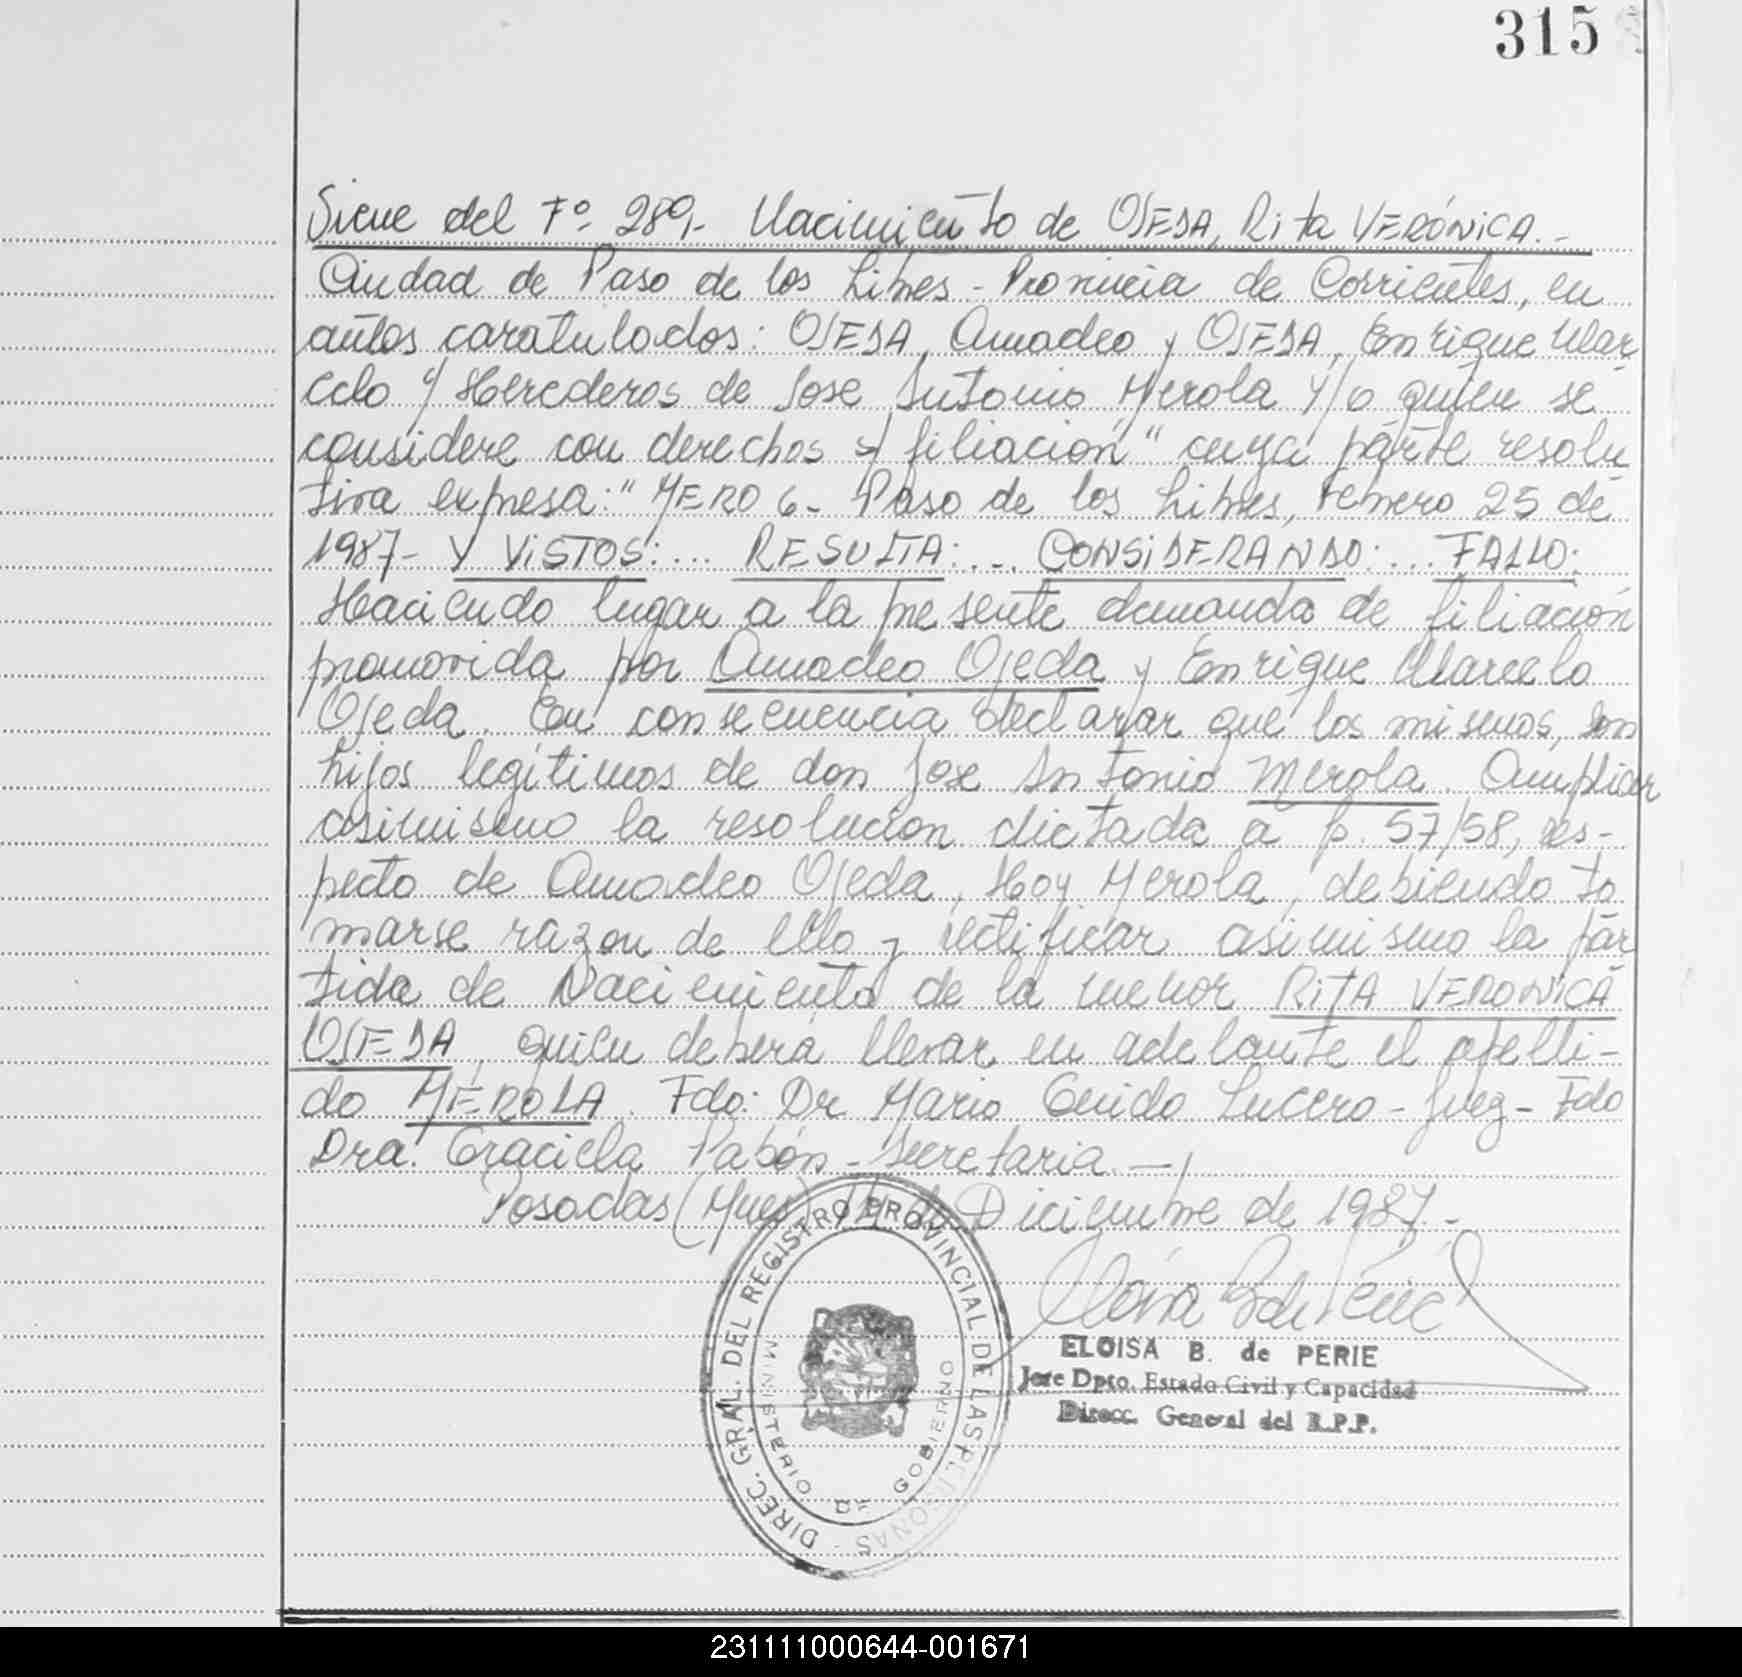 315
Viene del Fº 289,- Nacimiento de OJEDA, Rita VERÓNICA.-
Ciudad de Paso de los Libres - Provincia de Corrientes, en
autos caratulados: OJEDA, Amadeo y OJEDA, Enrique Mar
celo c/ Herederos de Jose Antonio Merola y/o quien se
considere con derechos s/ filiación" cuya parte resolu
tiva expresa: "MERO 6- Paso de los Libres, Febrero 25 de
1987- Y VISTOS:... RESULTA:... CONSIDERANDO:... FALLO:
Haciendo lugar a la presente demanda de filiación
promovida por Amadeo Ojeda y Enrique Marcelo
Ojeda. En consecuencia declarar que los mismos, son
hijos legítimos de don Jose Antonio Merola. Ampliar
asimismo la resolucion dictada a f. 57/58, res-
pecto de Amadeo Ojeda, Hoy Merola, debiendo to
marse razon de ello y rectificar asimismo la par
tida de Nacimiento de la menor RITA VERONICA
OJEDA, quien deberá llevar en adelante el apelli-
do MEROLA. Fdo: Dr Mario Guido Lucero - Juez - Fdo
Dra. Graciela Pabón - Secretaria.-
Posadas (Mnes) de Diciembre de 1987.-
ELOISA B. de PERIE
Jefe Dpto. Estado Civil y Capacidad
Direcc. General del R.P.P.
DIREC. GRAL. DEL REGISTRO PROVINCIAL DE LAS PERSONAS -
MINISTERIO DE GOBIERNO
231111000644-001671